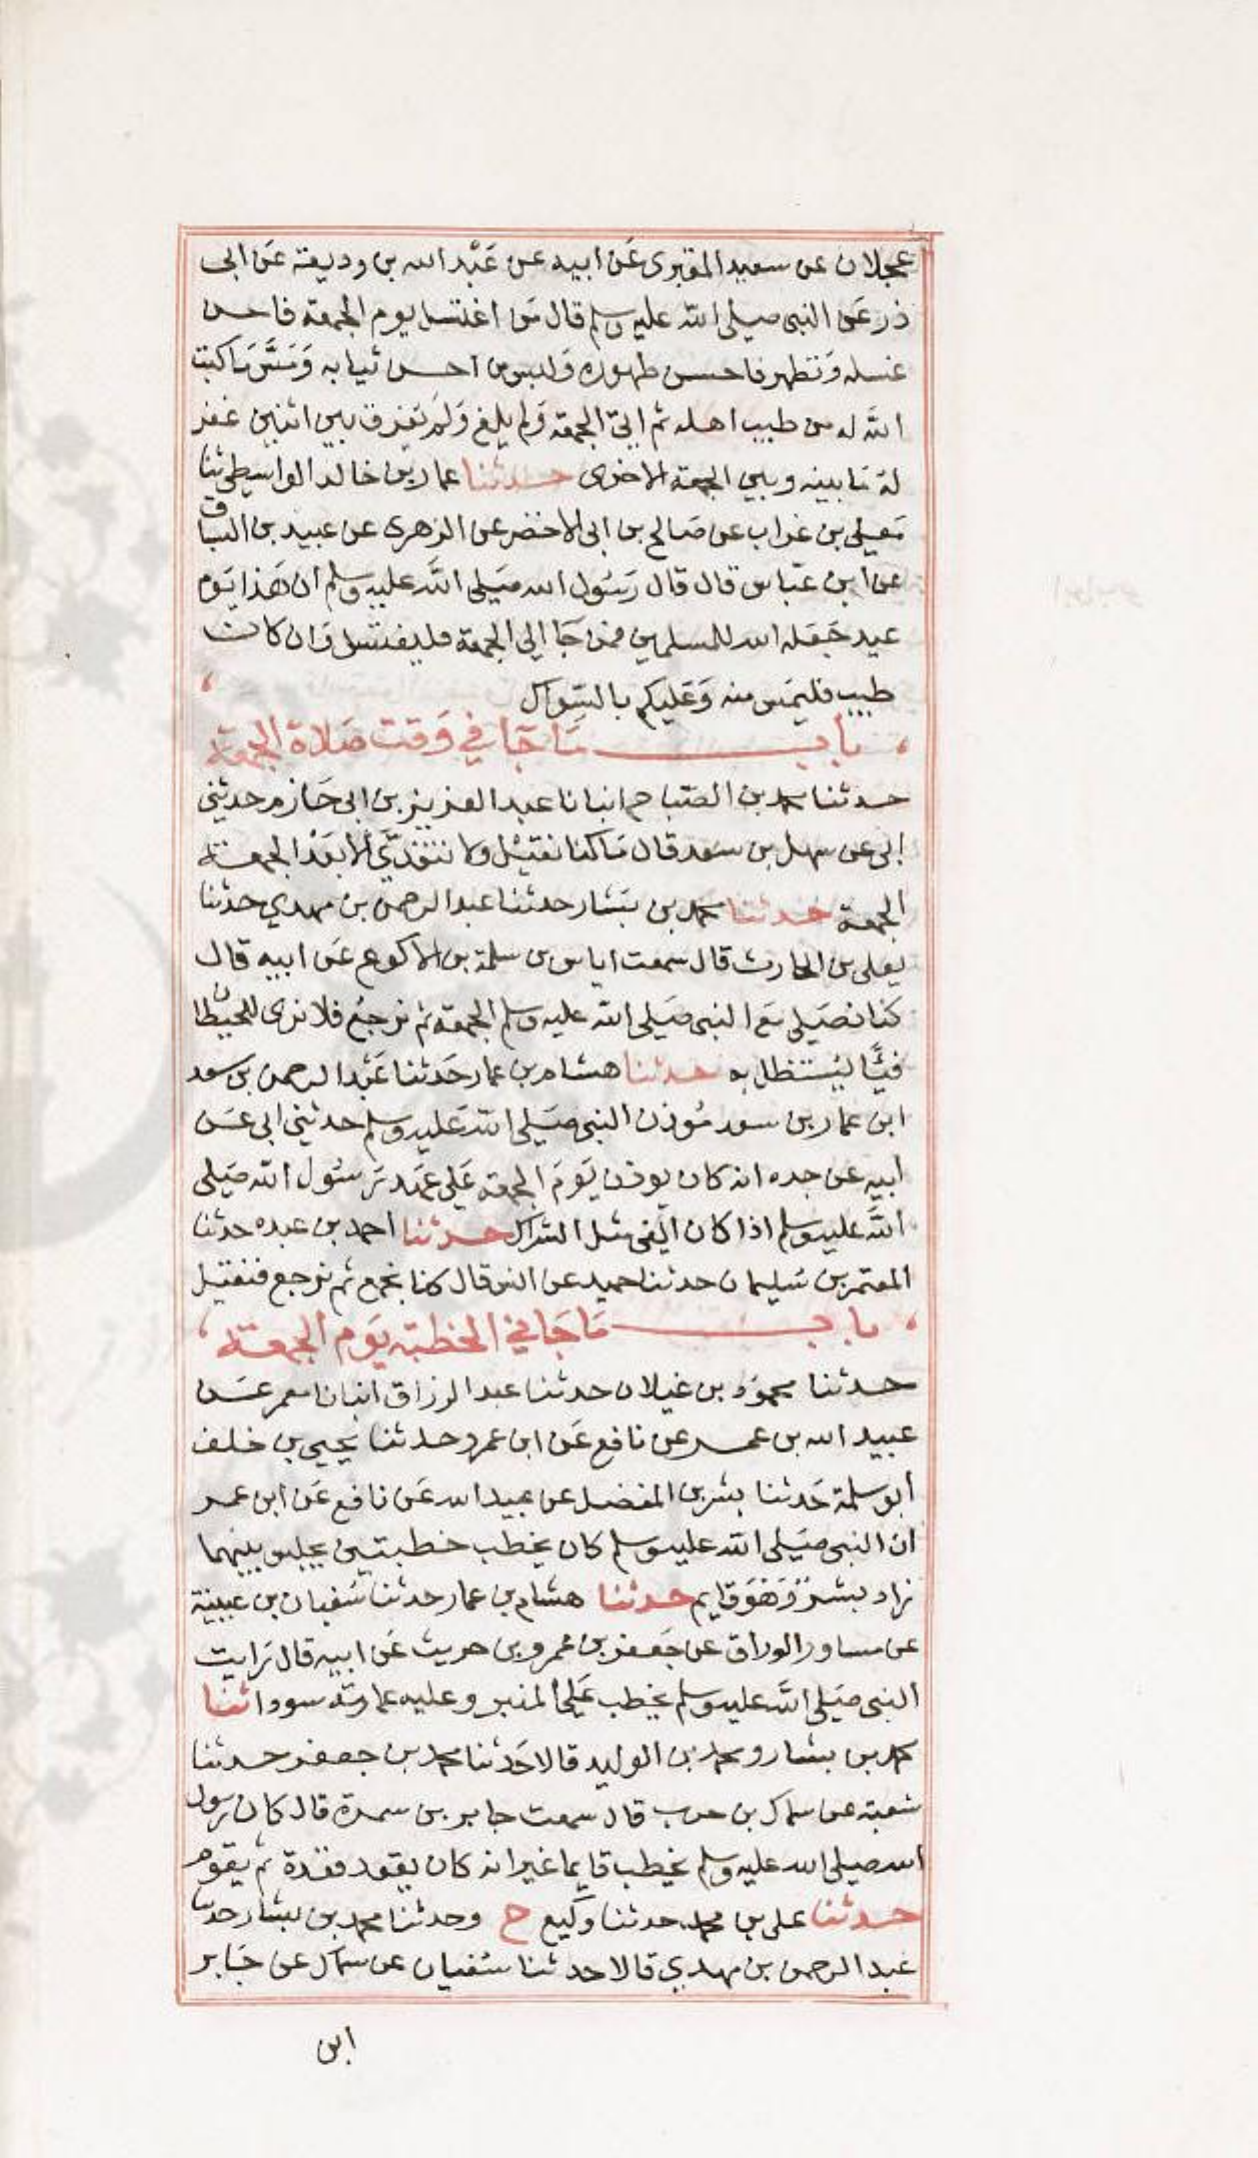 عجلان عن سعيد المقبري عَن ابيه عن عَبْد الله بن وديعة عَن ابى
ذر عَن النبى صلى الله عليه وسلم قال مَن اغتسل يوم الجمعة فاحسن
غسله وَتطهر فاحسن طهوره وَلبس من احسن ثيابه وَمَسَّ مَا كتب
الله له من طيب اهله ثم اتى الجمعة وَلم يلغ وَلم يَفرق بين اثنين غفر
له مَا بينه وبين الجمعة الاخرى حدثنا عمار بن خالد الواسطى ثنا
عَلى بن غراب عن صَالح بن ابى الاخضر عن الزهرى عن عبيد بن السباق
عن ابن عَبّاس قال قال رَسُول الله صَلى الله عليه وسلم ان هَذا يَوم
عيد جَعَله الله للمسلمين فمن جَا الى الجمعة فليغتسل وَان كان
طيب فليمَس منه وَعَليكم بالسّواك
باب مَا جَا في وَقت صَلاة الجمعة
حدثنا محمد بن الصَّباح انبانا عبد العزيز بن ابى حَازم حدثنى
ابى عن سهل بن سَعد قال مَا كنا نَقيْل ولا نتغدَّى الا بَعْد الجمعة
الجمعة حدثنا محمد بن بَشار حدثنا عبد الرحمن بن مهدي حدثنا
يعلى بن الحارث قال سمعت اياس بن سلمة بن الاكوع عَن ابيه قال
كنا نصَلى مَع النبى صَلى الله عليه وسلم الجمعة ثم نرجعُ فلا نرى للحيطان
فيئًا يُستظل به حدثنا هشام بن عمار حَدثنا عَبْد الرحمن بن سعد
ابن عمار بن سعد مُوذن النبى صَلى الله عَليه وسلم حدثنى ابى عَن
ابيه عن جده انه كان يوذن يَومَ الجمعة عَلى عَهد رَسُول الله صَلى
اللَّه عليه وسلم اذا كان الفى مثل الشراك حدثنا احمد بن عبده حدثنا
المعتمر بن سُليمان حدثنا حميد عن انس قال كنا نجمع ثم نرجع فنقيل
باب مَا جَا في الخطبة يَوم الجمعة
حدثنا محمود بن غيلان حدثنا عبد الرزاق انبانا معمر عَن
عبيد الله بن عمر عن نافع عَن ابن عمر وحدثنا يَحيى بن خلف
ابو سلمة حَدثنا بشر بن المفضل عن عبيد الله عَن نافع عَن ابن عمر
ان النبى صَلى الله عليه وسلم كان يخطب خطبتين يجلس بينهما
زاد بشر وَهُوَ قايم حدثنا هشام بن عمار حدثنا سُفيان بن عيينة
عن مساور الوراق عن جَعفر بن عمرو بن حريث عَن ابيه قال رَايت
النبى صَلى اللَّه عليه وسلم يخطب عَلى المنبر وعليه عمامة سودا ثنا
محمد بن بشار ومحمد بن الوليد قالا حَدثنا محمد بن جعفر حدثنا
شعبة عن سماك بن حرب قال سمعت جابر بن سمرة قال كان رسول
الله صلى الله عليه وسلم يخطب قايما غير انه كان يقعد قعْدة ثم يقوم
حدثنا على بن محمد حدثنا وكيع ح وحدثنا محمد بن بشار حدثنا
عبد الرحمن بن مهدي قالا حدثنا سُفيان عن سماك عن جَابر
ابن